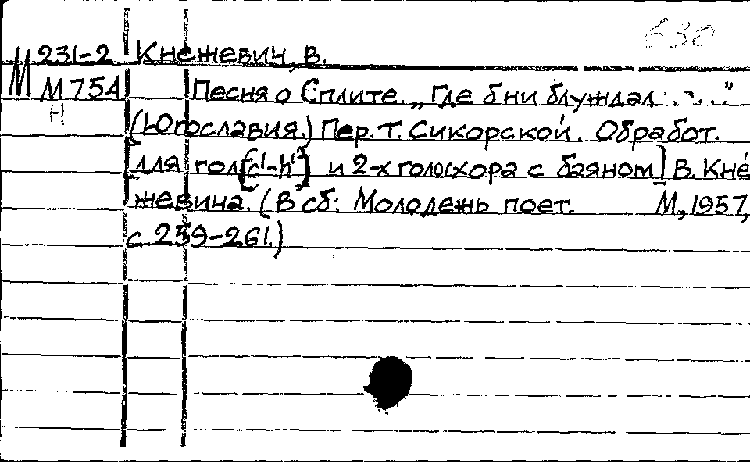 630
М 231-2 Кнежевич, В.
М 754 Песня о Сплите. „Где б ни блуждал..."
Н (Югославия.) Пер. Т. Сикорской. Обработ.
[для гол[c¹-h¹] и 2-х гол. хора с баяном] В. Кне
жевича. (В сб: Молодежь поет. М, 1957,
с. 259-261.)